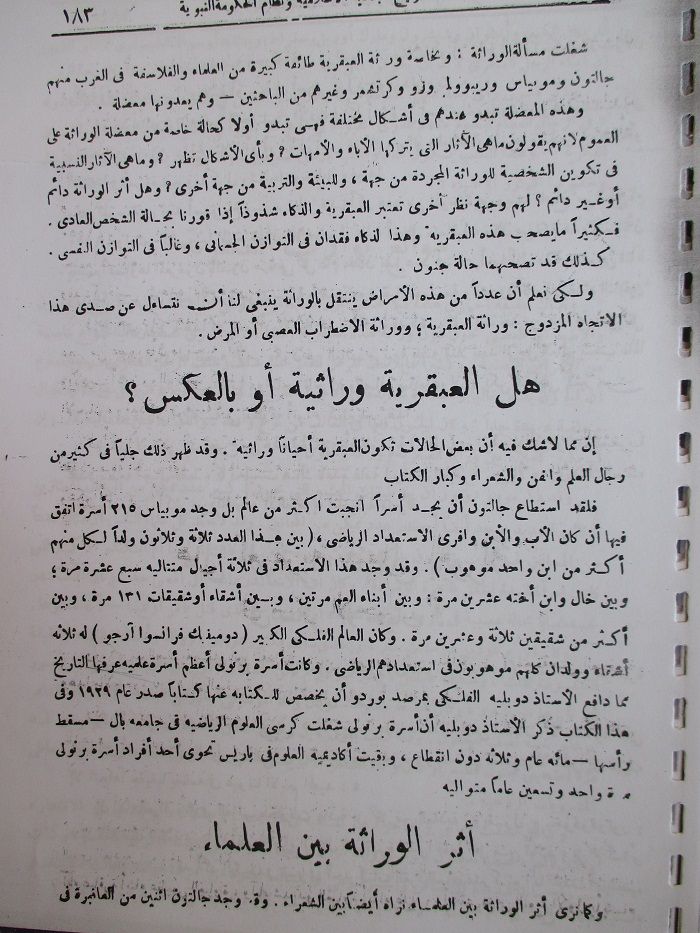 ونظام الحكومة النبوية
١٨٣
شغلت مسألة الوراثة : وبخاصة وراثة العبقرية طائفة كبيرة من العلماء والفلاسفة فى الغرب منهم
جالتون وموبياس وريبوولمبروزو وكرتشمر وغيرهم من الباحثين — وهم يعدونها معضلة .
وهذه المعضلة تبدو عندهم فى أشكال مختلفة فهى تبدو أولا كحالة خاصة من معضلة الوراثة على
العموم لانهم يقولون ماهى الآثار التى يتركها الآباء والامهات ؟ وبأى الأشكال تظهر ؟ وماهى الآثار النسبية
فى تكوين الشخصية للوراثة المجردة من جهة ، وللبيئة والتربية من جهة أخرى ؟ وهل أثر الوراثة دائم
أوغير دائم ؟ لهم وجهة نظر أخرى تعتبر العبقرية والذكاء شذوذاً إذا قورنا بحالة الشخص العادى .
فكثيراً مايصحب هذه العبقريه وهذا لذكاء فقدان فى التوازن الجسمانى ، وغالباً فى التوازن النفسى .
كذلك قد تصحبهما حالة جنون .
ولكى نعلم أن عدداً من هذه الأمراض ينتقل بالوراثة ينبغى لنا أن نتساءل عن صدى هذا
الاتجاه المزدوج : وراثة العبقرية ؛ ووراثة الاضطراب العصبى أو المرض .
هل العبقرية وراثية أو بالعكس ؟
إن مما لاشك فيه أن بعض الحالات تكون العبقرية أحياناً وراثيه . وقد ظهر ذلك جلياً فى كثير من
رجال العلم والفن والشعراء وكبار الكتاب
فلقد استطاع جالتون أن يجد أسراً انجبت اكثر من عالم بل وجد موبياس ٢١٥ أسرة اتفق
فيها أن كان الأب والأبن وافرى الاستعداد الرياضى ، ( بين هذا العدد ثلاثة وثلاثون ولداً لكل منهم
أكثر من ابن واحد موهوب ) . وقد وجد هذا الاستعداد فى ثلاثة أجيال متتاليه سبع عشرة مرة ؛
وبين خال وابن أخته عشرين مرة : وبين أبناء العم مرتين ، وبين أشقاء أوشقيقات ١٣١ مرة ، وبين
أكثر من شقيقين ثلاثة وعشرين مرة . وكان العالم الفلكى الكبير ( دومينيك فرانسوا آرجو ) له ثلاثه
أشقاء وولدان كلهم موهوبون فى استعدادهم الرياضى . وكانت أسرة برنولى أعظم أسرة علميه عرفها التاريخ
مما دافع الأستاذ دوبليه الفلكى بمرصد بوردو أن يخصص للكتابه عنها كتاباً صدر عام ١٩٣٩ وفى
هذا الكتاب ذكر الأستاذ دوبليه أن أسرة برنولى شغلت كرسى العلوم الرياضيه فى جامعه بال — مسقط
رأسها — مائه عام وثلاثه دون انقطاع ، وبقيت أكاديميه العلوم فى باريس تحوى أحد أفراد أسرة برنولى
واحد وتسعين عاماً متواليه
أثر الوراثة بين العلماء
وكما نرى أثر الوراثة بين العلماء نراه أيضاً بين الشعراء . وجد جالتون اثنين من العباقرة فى